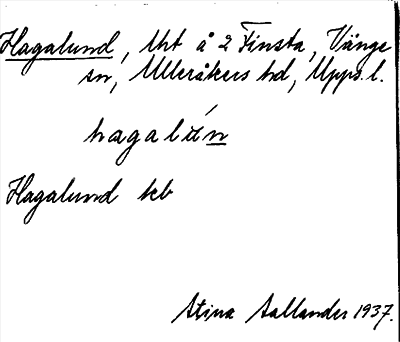 Hagalund, Uht å 2 Finsta, Vänge
sn, Ulleråkers hd, Upps. l.
hagalún
Hagalund tcb
Stina Sallander 1937.